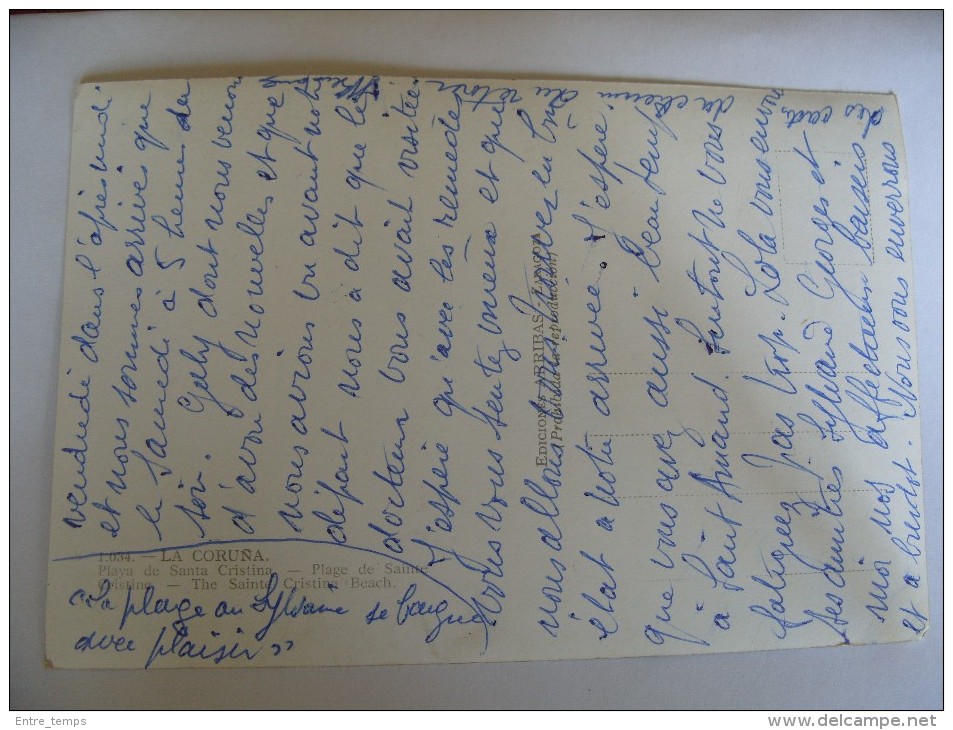 1.034. — LA CORUÑA.
Playa de Santa Cristina. — Plage de Sainte
Cristine. — The Sainte Cristina Beach.
"La plage ou Sylviane se baigne
avec plaisir"
EDICIONES ARRIBAS - ZARAGOZA
Prohibida la reproducción
vendredi dans l'après midi
et nous sommes arrivés que
le Samedi à 5 heures du
soir. Gaby dont nous venons
d'avoir des nouvelles et que
nous avions vu avant notre
départ nous a dit que le
docteur vous avait visitée
J'espère qu'avec les remèdes
vous vous sentez mieux et que
nous allons vous trouver en bon
état a notre arrivée. J'espère
que vous avez aussi beau temps
à Saint Amand surtout ne vous
fatiguez pas trop. Lola vous envoie
ses amitiés Sylviane Georges et
moi nos affectueux baisers
et a bientot. Nous vous enverrons
des cartes du chemin du retour
Entre_temps
www.delcampe.net